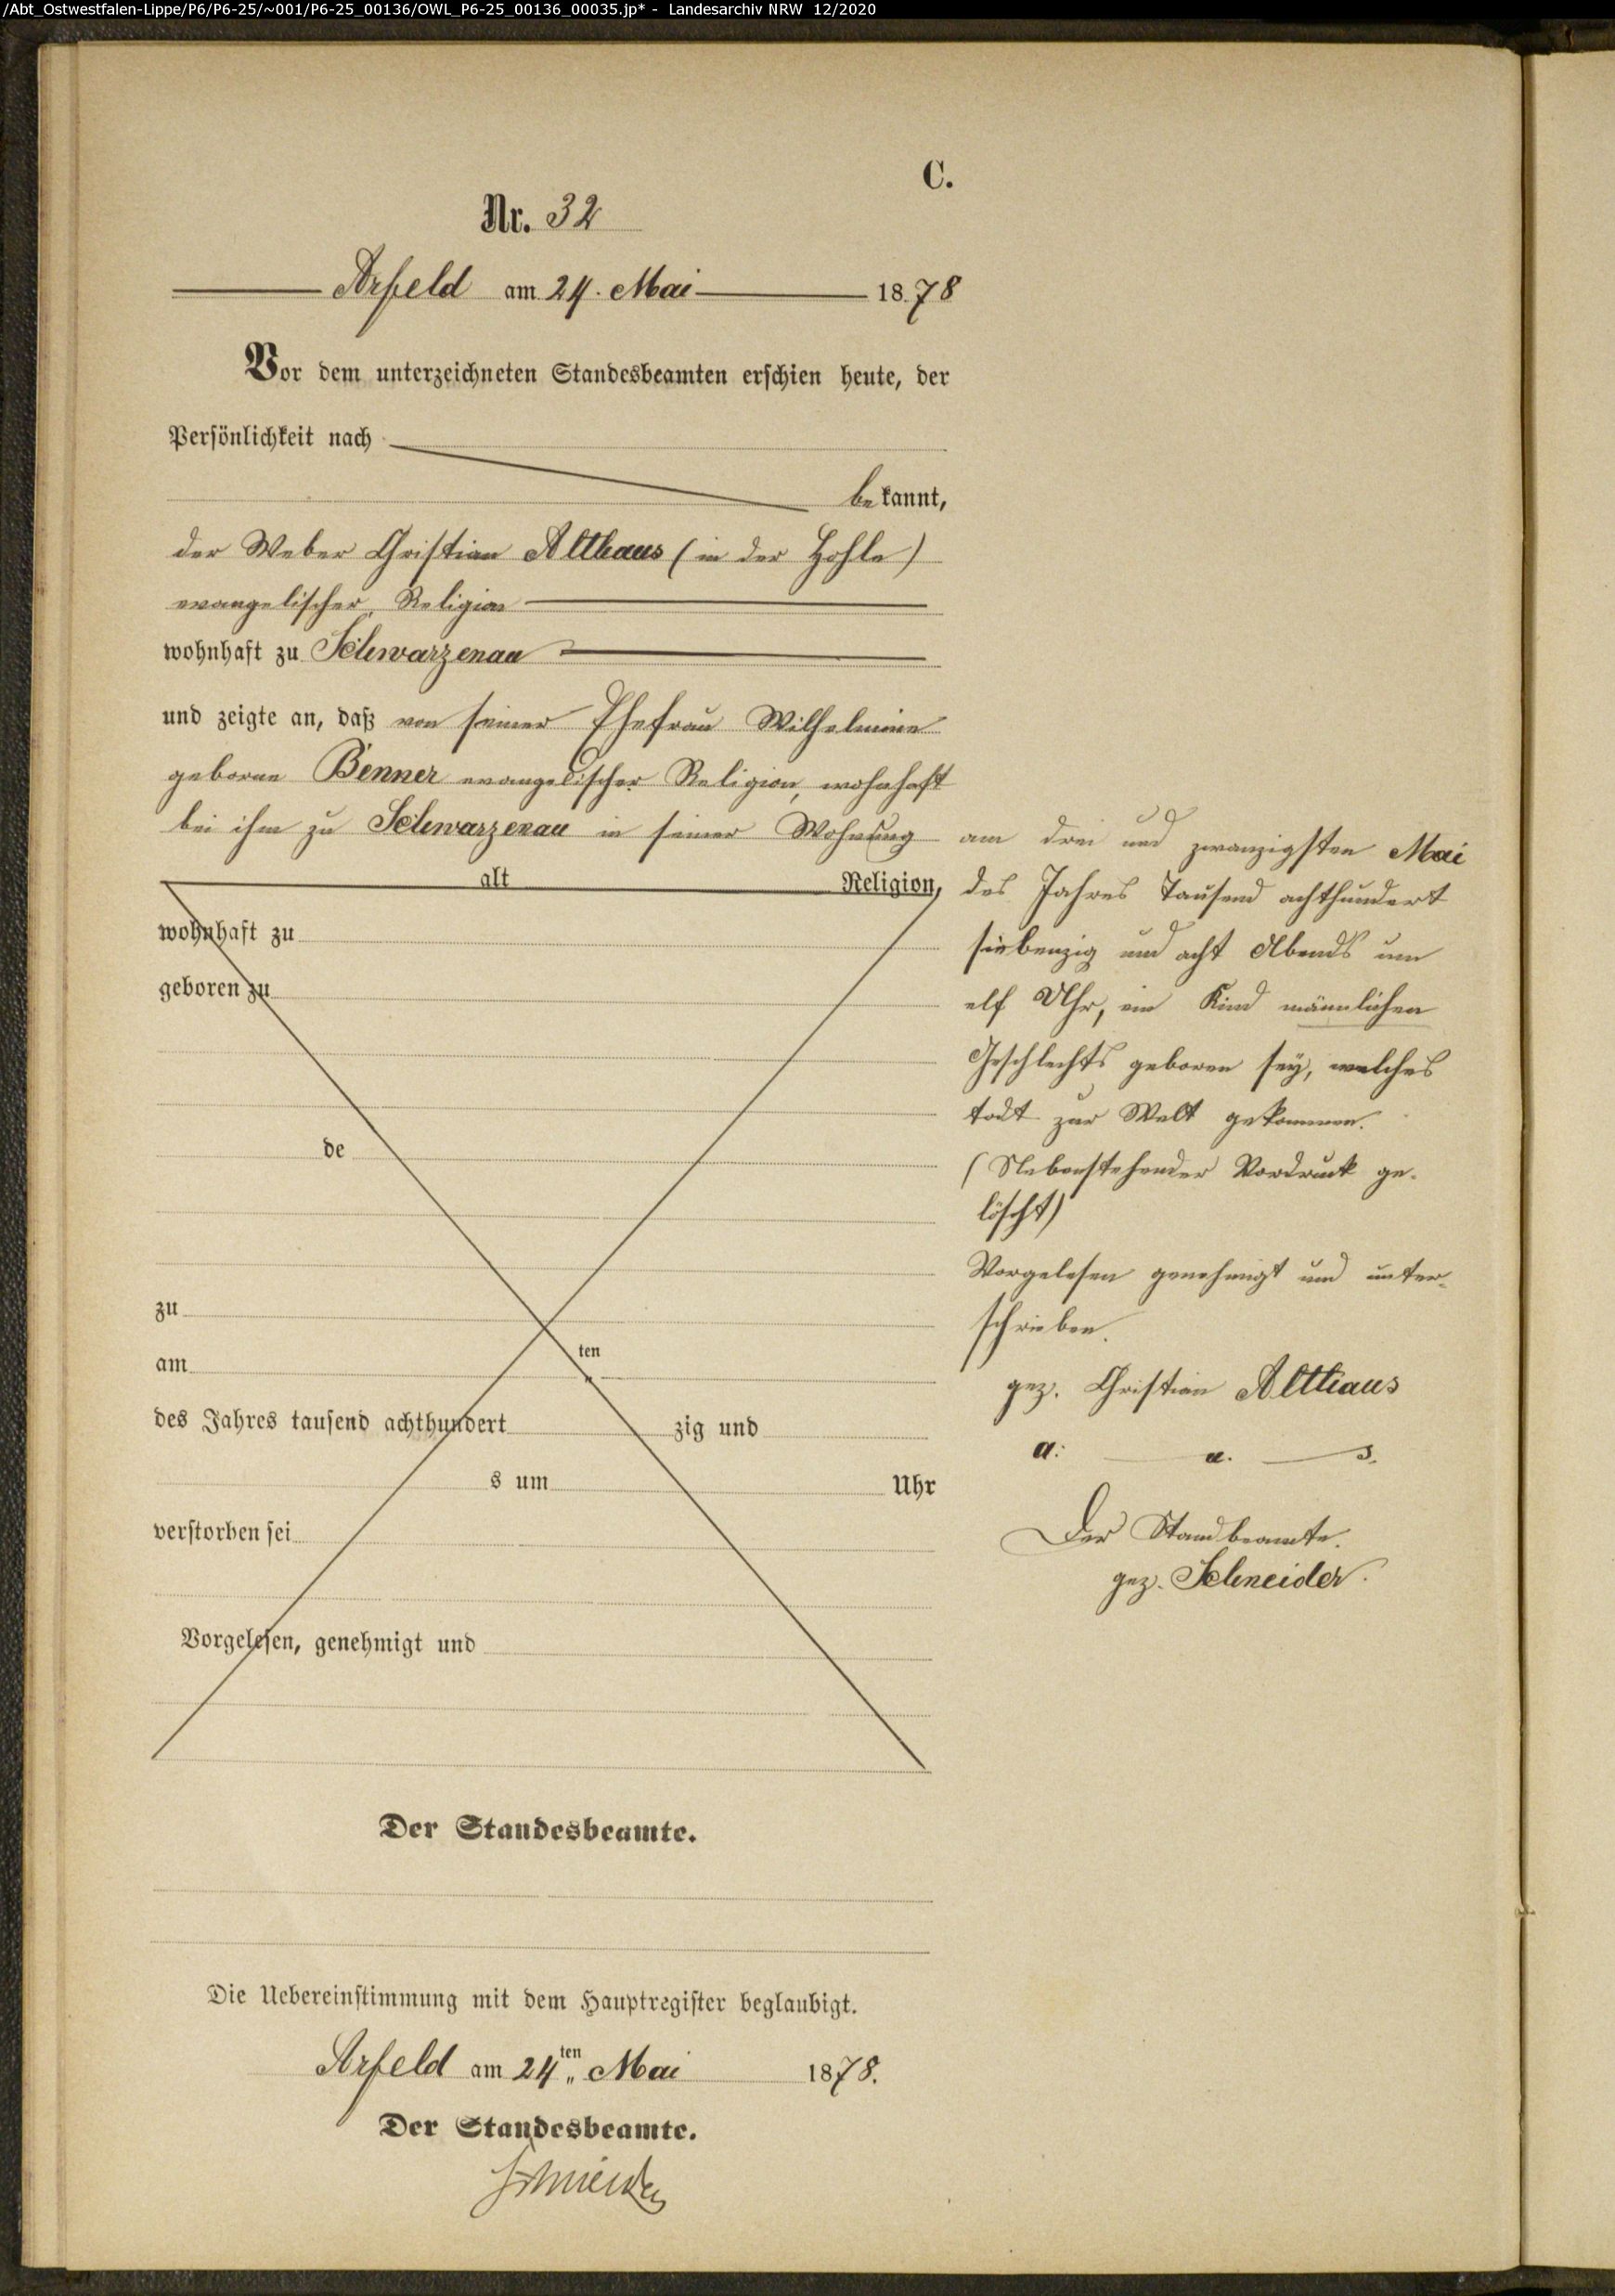 /Abt_Ostwestfalen-Lippe/P6/P6-25/~001/P6-25_00136/OWL_P6-25_00136_00035.jp* - Landesarchiv NRW 12/2020
C.
Nr. 32
Arfeld am 24. Mai 1878
Vor dem unterzeichneten Standesbeamten erschien heute, der
Persönlichkeit nach
bekannt,
der Weber Christian Althaus (in der Hohle)
evangelischer Religion
wohnhaft zu Schwarzenau
und zeigte an, daß von seiner Ehefrau Wilhelmine
geborne Benner evangelischer Religion, wohnhaft
bei ihm zu Schwarzenau in seiner Wohnung
alt Religion,
wohnhaft zu
geboren zu
de
zu
am ten
des Jahres tausend achthundert zig und
s um Uhr
verstorben sei
Vorgelesen, genehmigt und
am drei und zwanzigsten Mai
des Jahres Tausend achthundert
siebenzig und acht Abends um
elf Uhr, ein Kind männlichen
Geschlechts geboren sey, welches
todt zur Welt gekommen.
(Nebenstehender Vordruck ge-
löscht)
Vorgelesen genehmigt und unter-
schrieben.
gez. Christian Althaus
a. u. s.
Der Standbeamte.
gez. Schneider.
Der Standesbeamte.
Die Uebereinstimmung mit dem Hauptregister beglaubigt.
Arfeld am 24ten Mai 1878.
Der Standesbeamte.
Schneider